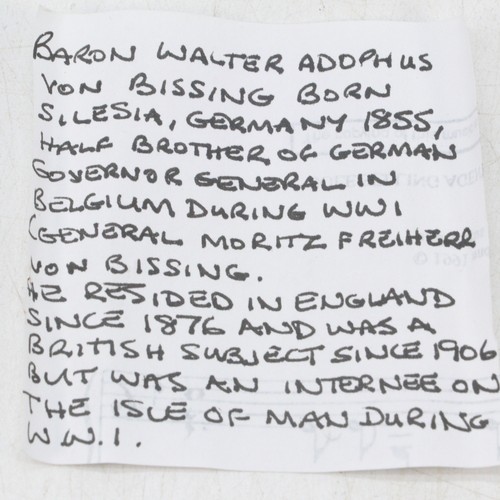 BARON WALTER ADOPHUS
VON BISSING BORN
SILESIA, GERMANY 1855,
HALF BROTHER OF GERMAN
GOVERNOR GENERAL IN
BELGIUM DURING WW1
(GENERAL MORITZ FREIHERR
VON BISSING.
HE RESIDED IN ENGLAND
SINCE 1876 AND WAS A
BRITISH SUBJECT SINCE 1906
BUT WAS AN INTERNEE ON
THE ISLE OF MAN DURING
W.W.I.